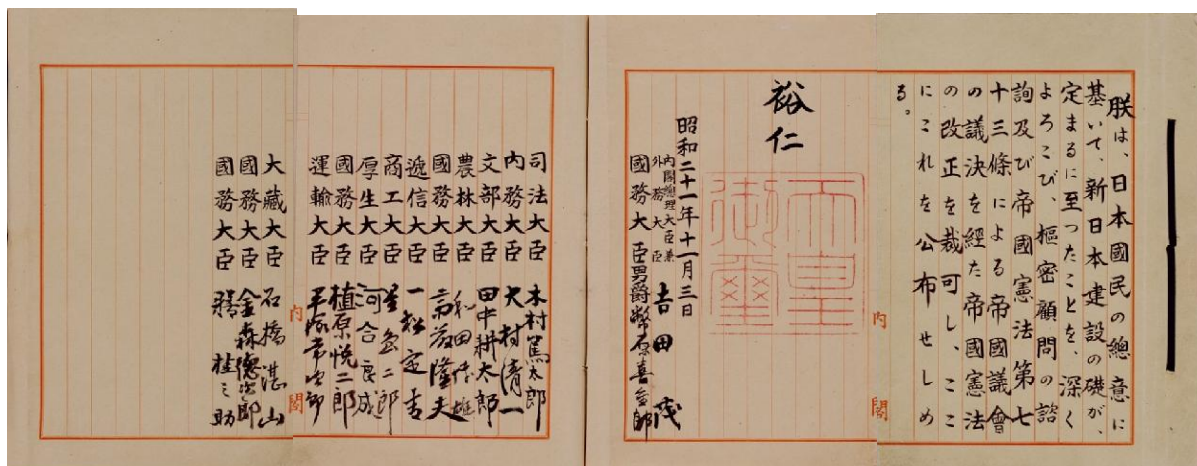 朕は、日本國民の總意に
基いて、新日本建設の礎が、
定まるに至つたことを、深く
よろこび、樞密顧問の諮
詢及び帝國憲法第七
十三條による帝國議會
の議決を経た帝國憲法
の改正を裁可し、ここ
にこれを公布せしめ
る。
裕仁
天皇御璽
昭和二十一年十一月三日
内閣總理大臣兼
外務大臣 吉田茂
國務大臣 男爵幣原喜重郎
司法大臣 木村篤太郎
内務大臣 大村清一
文部大臣 田中耕太郎
農林大臣 和田博雄
國務大臣 斎藤隆夫
逓信大臣 一松定吉
商工大臣 星島二郎
厚生大臣 河合良成
國務大臣 植原悦二郎
運輸大臣 平塚常次郎
大藏大臣 石橋湛山
國務大臣 金森徳次郎
國務大臣 膳桂之助
内閣
内閣